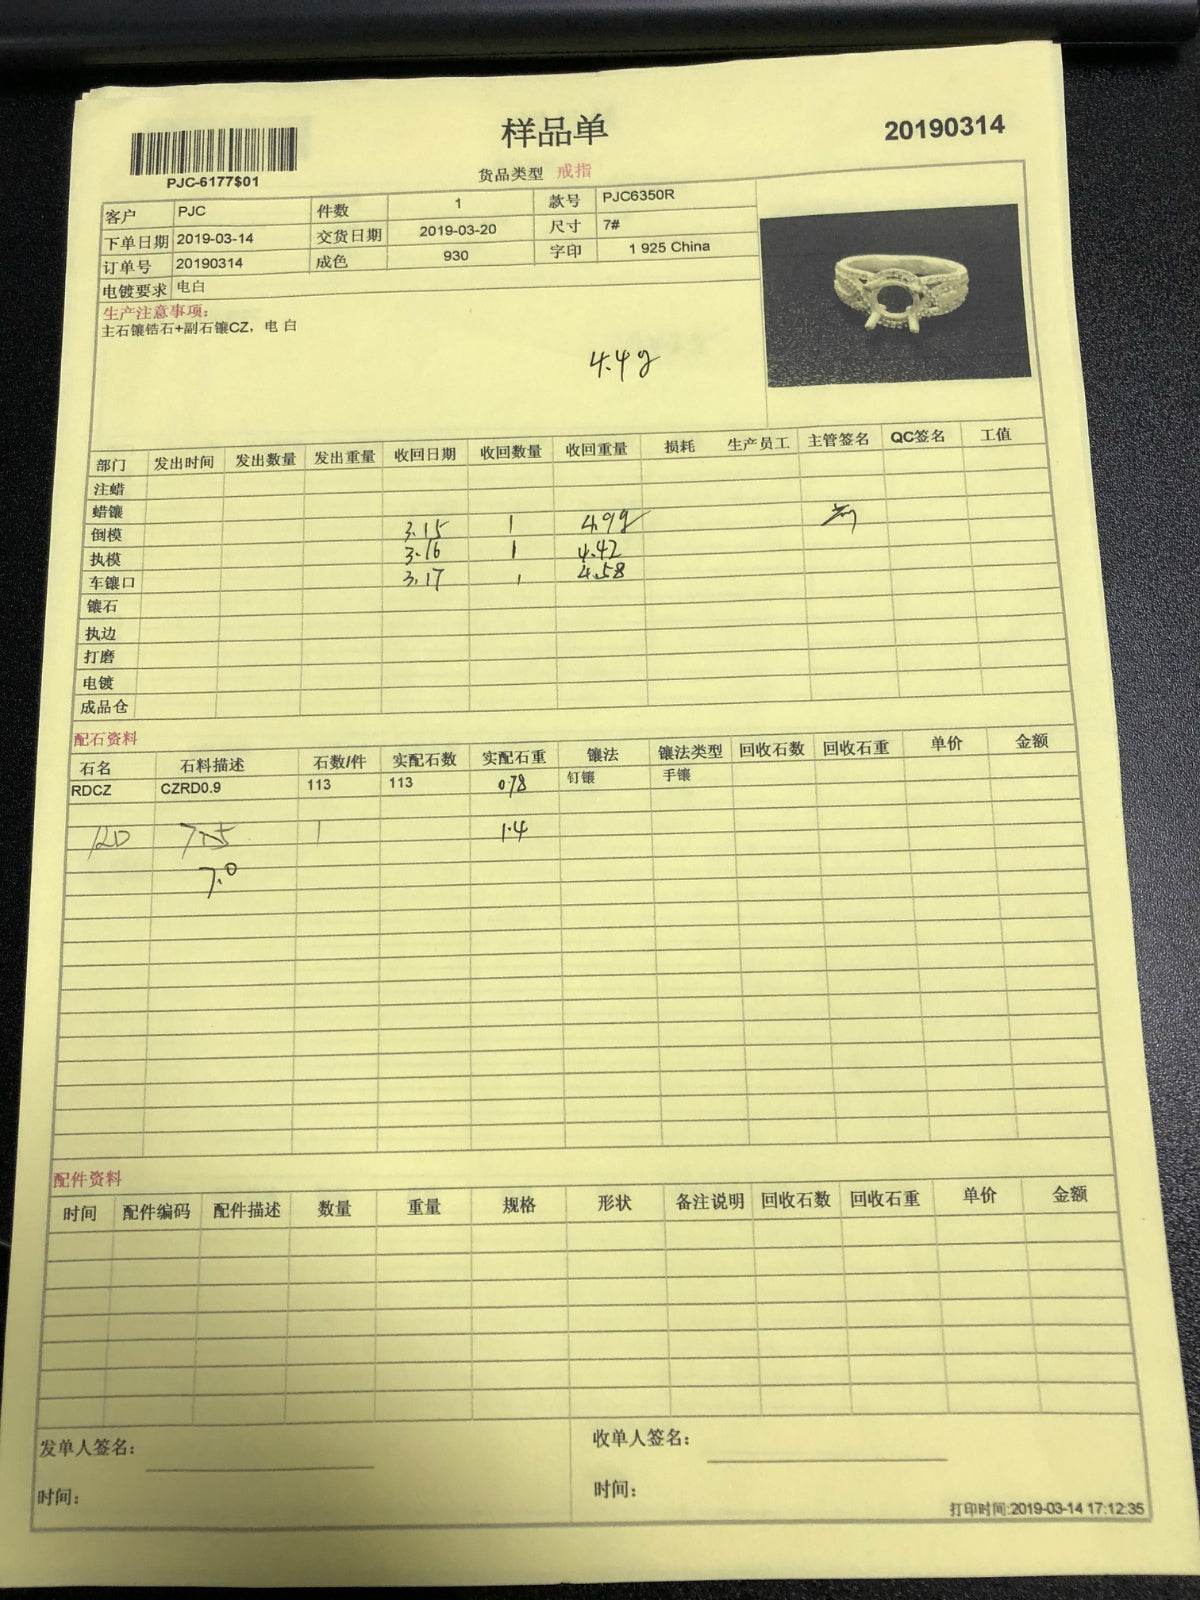 样品单
20190314
PJC-6177$01
货品类型 戒指
客户 PJC 件数 1 款号 PJC6350R
下单日期 2019-03-14 交货日期 2019-03-20 尺寸 7#
订单号 20190314 成色 930 字印 1 925 China
电镀要求 电白
生产注意事项:
主石镶锆石+副石镶CZ，电 白
4.4g
部门 发出时间 发出数量 发出重量 收回日期 收回数量 收回重量 损耗 生产员工 主管签名 QC签名 工值
注蜡
蜡镶
倒模 3.15 1 4.99g
执模 3.16 1 4.42
车镶口 3.17 1 4.58
镶石
执边
打磨
电镀
成品仓
配石资料
石名 石料描述 石数/件 实配石数 实配石重 镶法 镶法类型 回收石数 回收石重 单价 金额
RDCZ CZRD0.9 113 113 0.78 钉镶 手镶
1 1.4
7.0
配件资料
时间 配件编码 配件描述 数量 重量 规格 形状 备注说明 回收石数 回收石重 单价 金额
发单人签名: 收单人签名:
时间: 时间:
打印时间:2019-03-14 17:12:35